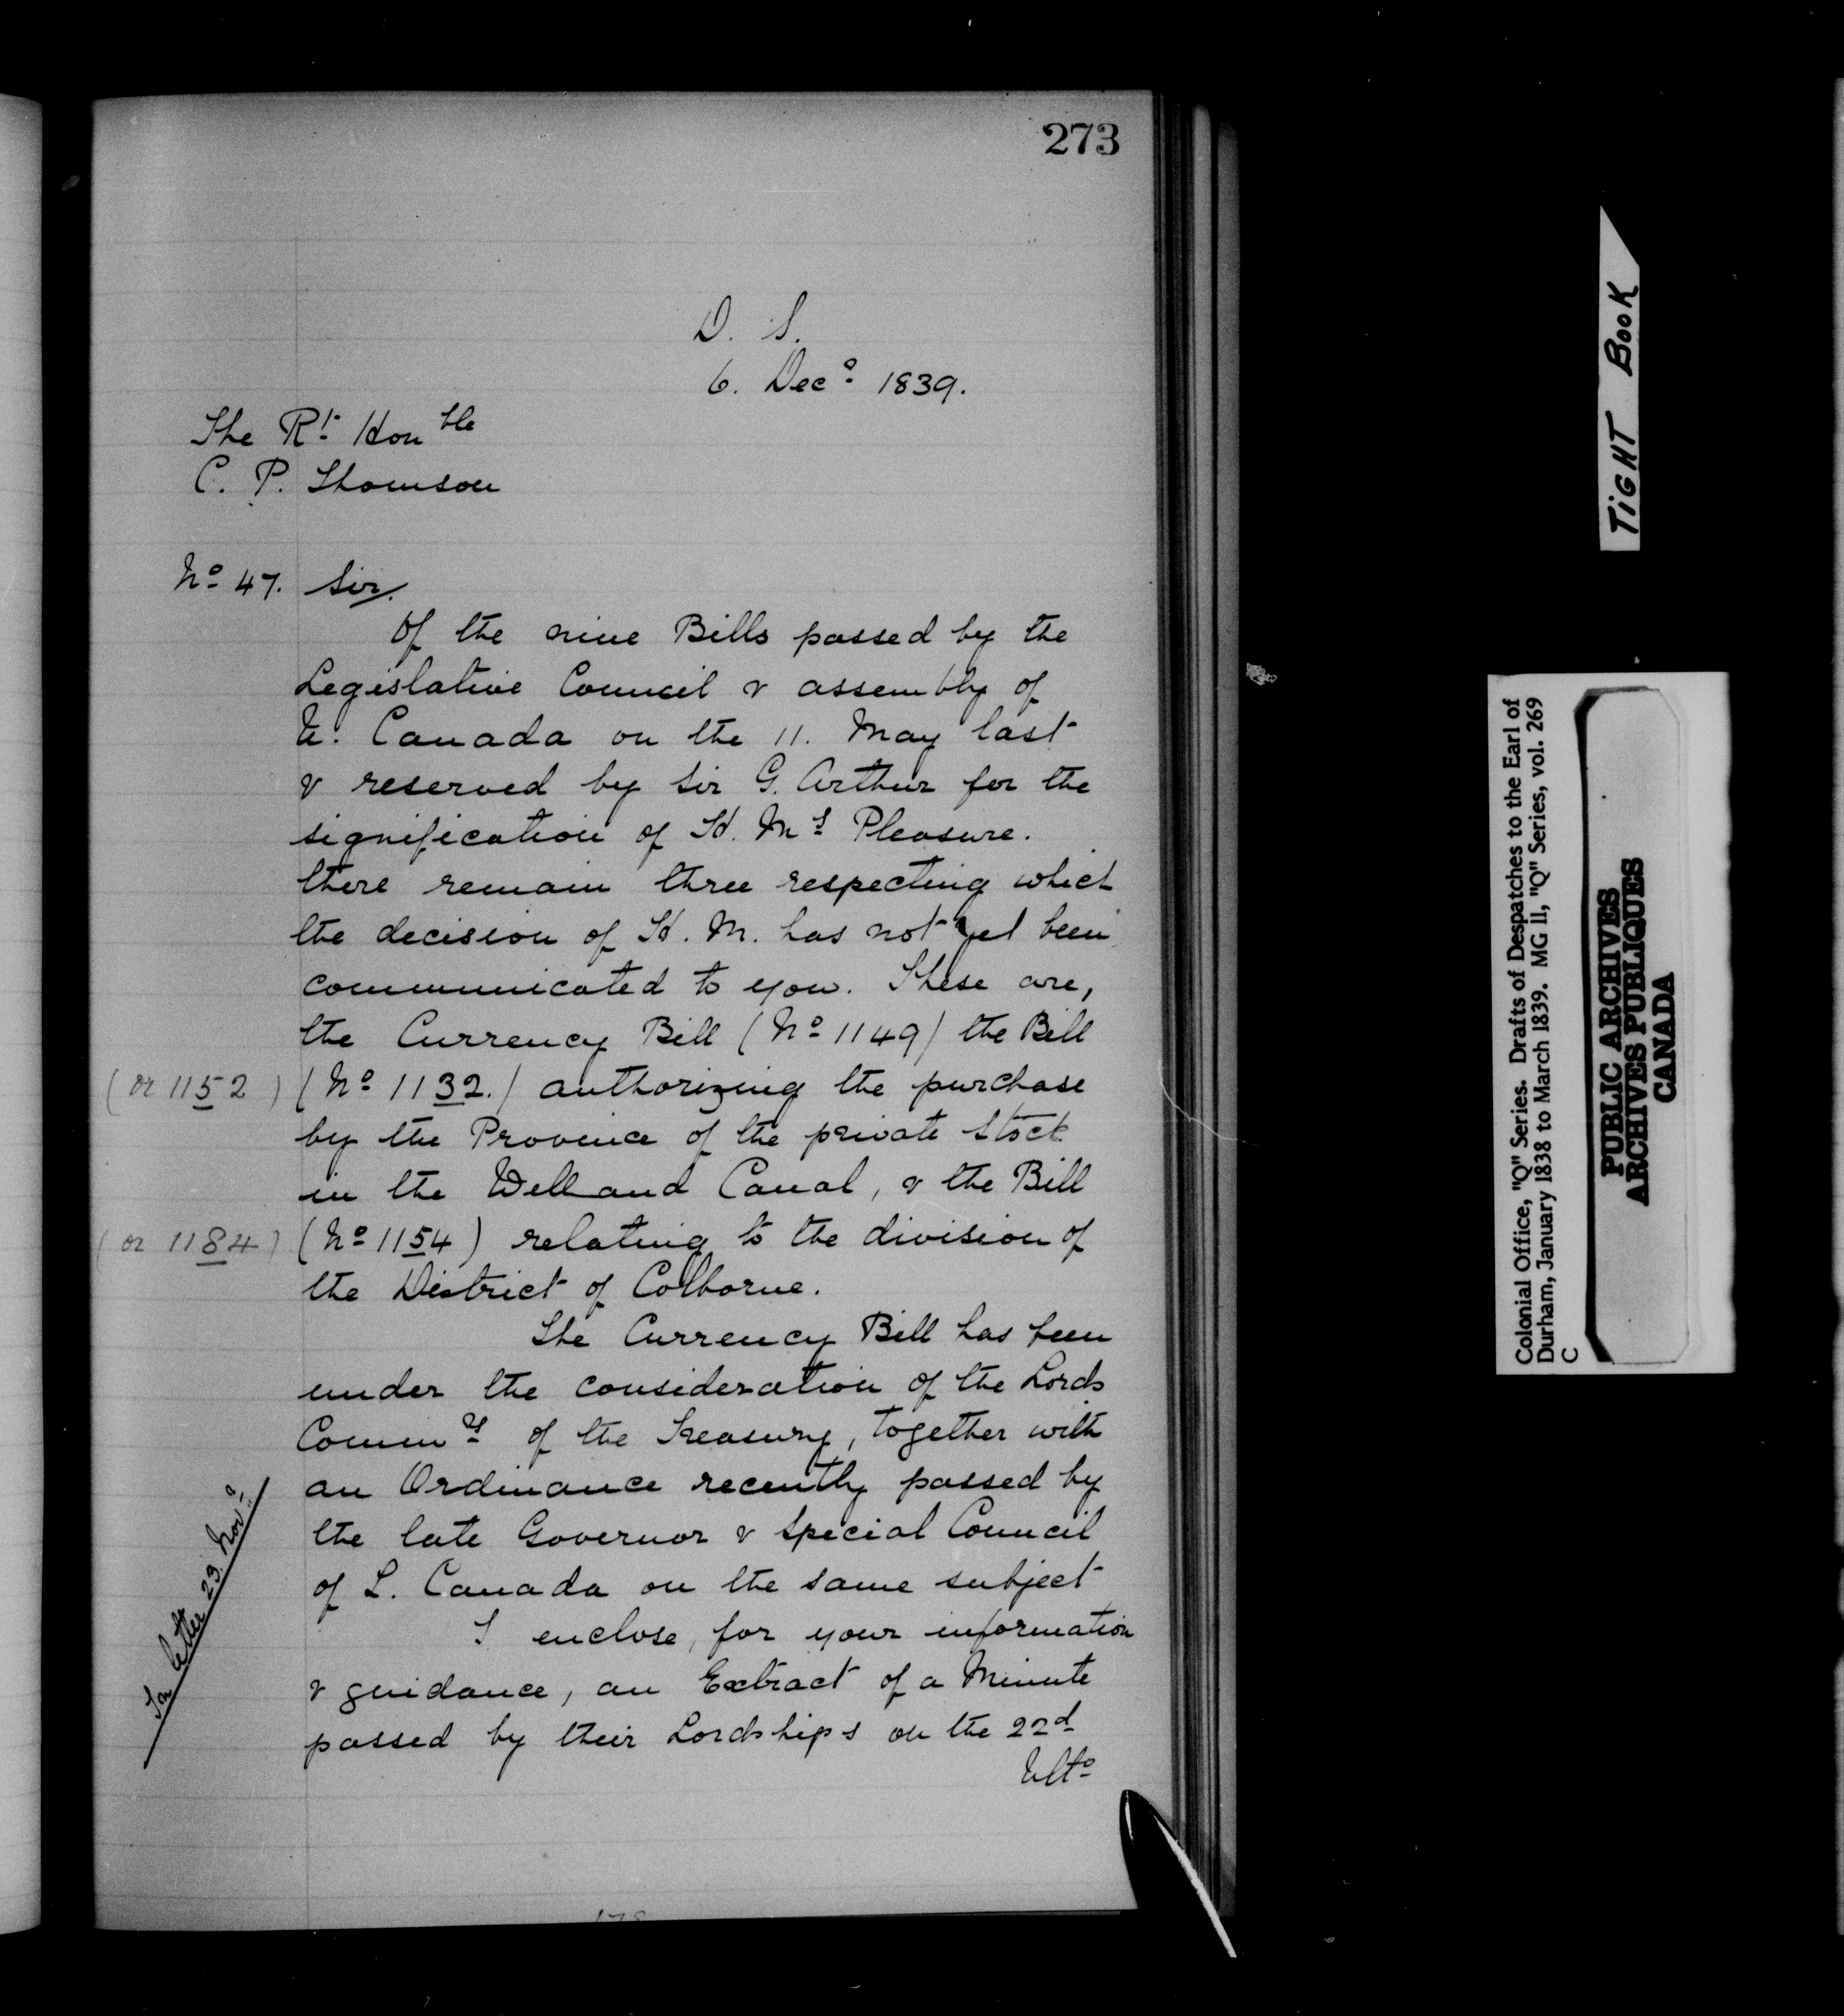 273
D. S.
6. Decr. 1839.
The Rt. Honble
C. P. Thomson
No. 47. Sir,
Of the nine Bills passed by the
Legislative Council & assembly of
U. Canada on the 11. May last
& reserved by Sir G. Arthur for the
signification of H. Ms Pleasure.
there remain three respecting which
the decision of H. M. has not yet been
communicated to you. These are,
the Currency Bill (No. 1149) the Bill
(or 1152) (No. 1132.) authorizing the purchase
by the Province of the private Stock
in the Welland Canal, & the Bill
(or 1184) (No. 1154) relating to the division of
the District of Colborne.
The Currency Bill has been
under the consideration of the Lords
Commrs of the Treasury, together with
an Ordinance recently passed by
the late Governor & Special Council
of L. Canada on the same subject
I enclose, for your information
& guidance, an Extract of a Minute
passed by their Lordships on the 22d
Ulto
letter 23. Novr.
TIGHT BOOK
Colonial Office, "Q" Series. Drafts of Despatches to the Earl of
Durham, January 1838 to March 1839. MG 11, "Q" Series, vol. 269
C
PUBLIC ARCHIVES
ARCHIVES PUBLIQUES
CANADA